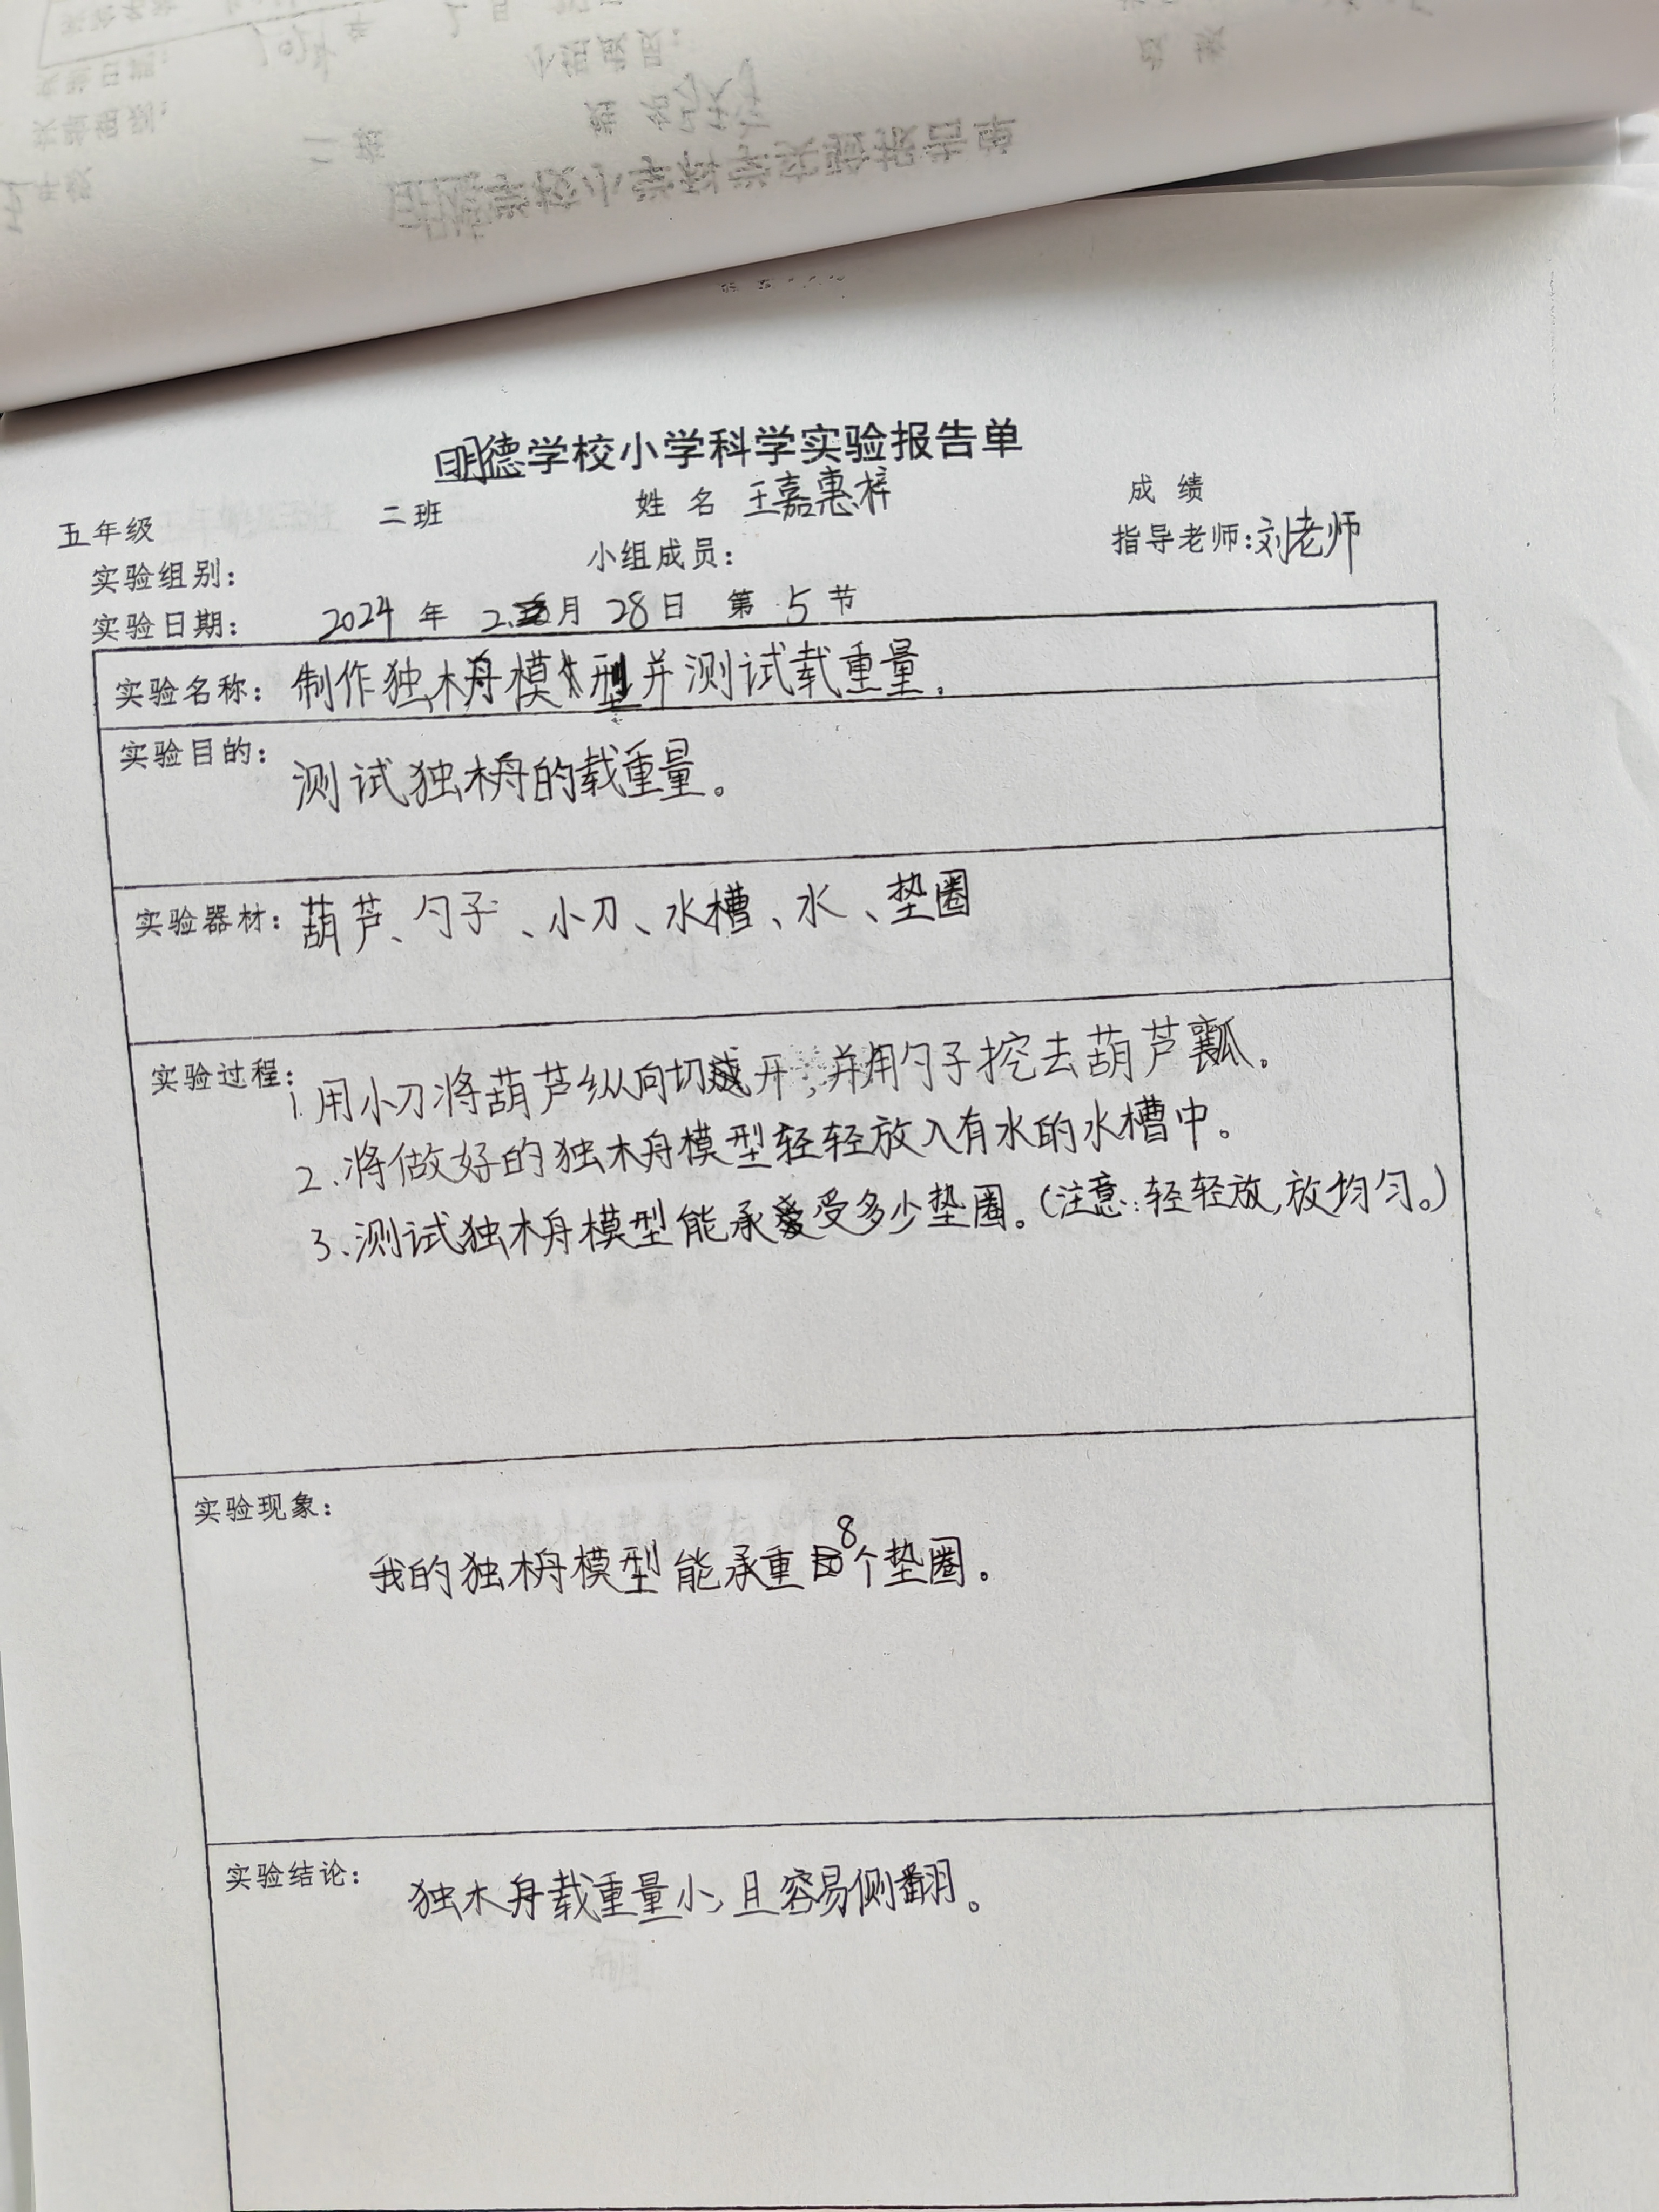 明德学校小学科学实验报告单
五年级 二班 姓名 王嘉惠梓 成绩
实验组别： 小组成员： 指导老师:刘老师
实验日期： 2024年 2月28日 第5节
实验名称：制作独木舟模型并测试载重量。
实验目的：测试独木舟的载重量。
实验器材：葫芦、勺子、小刀、水槽、水、垫圈
实验过程：
1.用小刀将葫芦纵向切开，并用勺子挖去葫芦瓤。
2.将做好的独木舟模型轻轻放入有水的水槽中。
3.测试独木舟模型能承受多少垫圈。(注意:轻轻放,放均匀。)
实验现象：
我的独木舟模型能承重8个垫圈。
实验结论：独木舟载重量小,且容易侧翻。